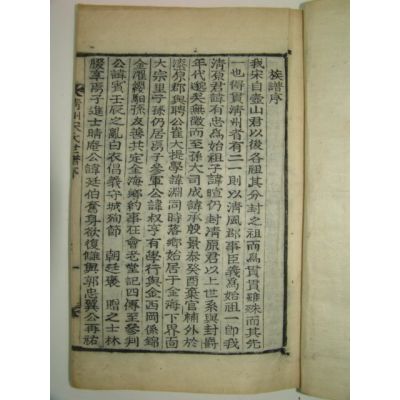 族譜序
我宋自壺山君以後各祖其分封之祖而爲貫貫雖殊而其先
一也術貫淸州者有二一則以淸風郡事臣義爲始祖一卽我
淸原君諱有忠爲始祖子諱暄仍封淸原君以上世系與封爵
年代邈矣無徵而至孫大司成諱承殷景泰癸酉棄官補外於
漆原郡與聘公崔大提學諱淵同時落鄕始居于金海下界面
大宗里子孫仍居焉子參軍公諱叔亨有學行與金西岡係錦
金濯纓馹孫友善共定金海鄕約事在會老堂記四傳至參判
公諱賓壬辰之亂白衣倡義守城殉節 朝廷褒 贈之士林
腏享焉子進士晴菴公諱廷伯奮身欲復讎與郭忠翼公再祐
淸州宋氏世譜序